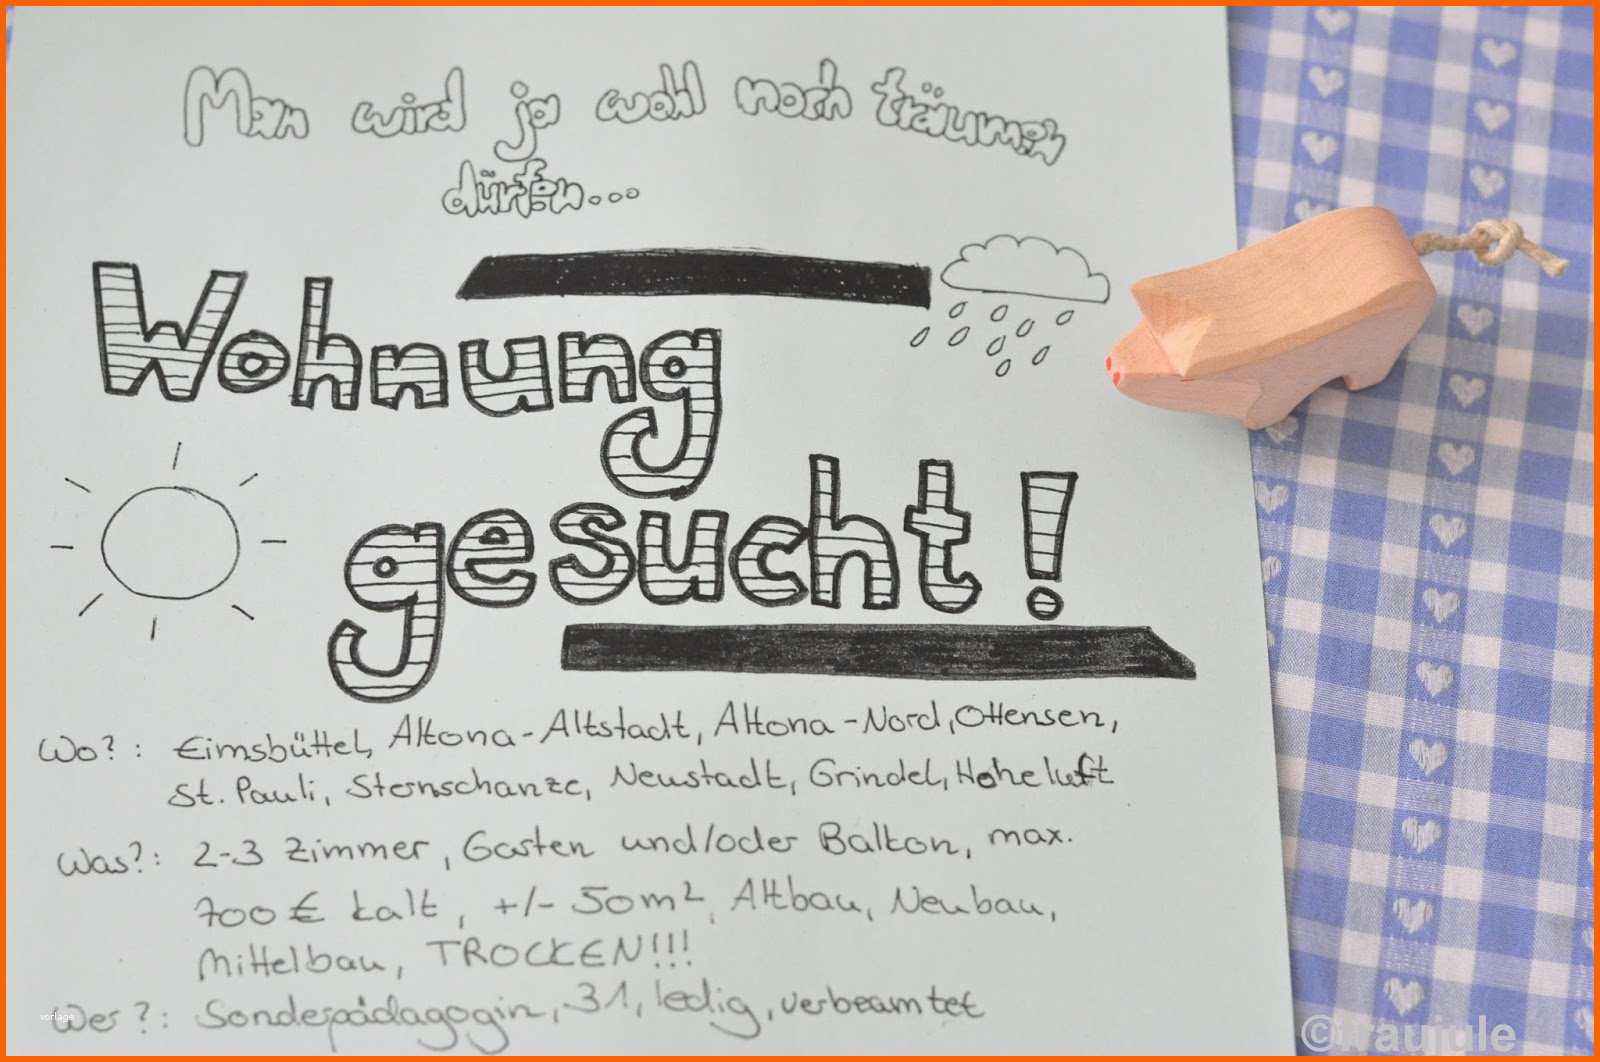 Man wird ja wohl noch träumen
dürfen...
Wohnung
gesucht!
Wo?: Eimsbüttel, Altona-Altstadt, Altona-Nord, Ottensen,
St. Pauli, Sternschanze, Neustadt, Grindel, Hoheluft
Was?: 2-3 Zimmer, Garten und/oder Balkon, max.
700 € kalt, +/- 50m², Altbau, Neubau,
Mittelbau, TROCKEN!!!
Wer?: Sonderpädagogin, 31, ledig, verbeamtet
vorlage
©fraujule